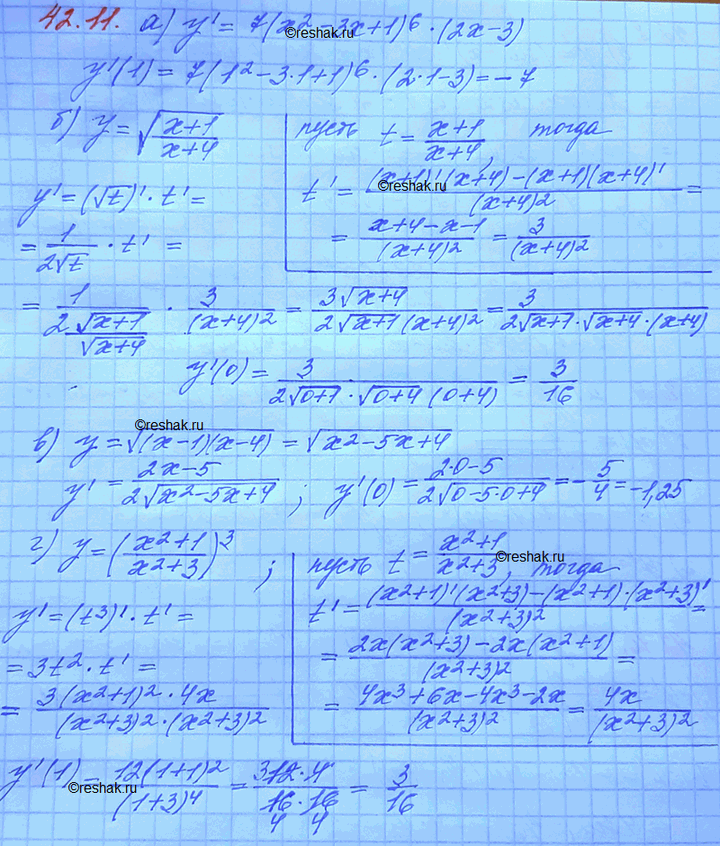 42.11. а) y' = 7(x² - 3x + 1)⁶ · (2x - 3)
reshak.ru
y'(1) = 7(1² - 3·1 + 1)⁶ · (2·1 - 3) = -7
б) y = √((x+1)/(x+4))
пусть t = (x+1)/(x+4), тогда
t' = ((x+1)'(x+4) - (x+1)(x+4)')/(x+4)² =
reshak.ru
= (x+4-x-1)/(x+4)² = 3/(x+4)²
y' = (√t)' · t' =
= 1/(2√t) · t' =
= 1/(2 √(x+1)/√(x+4)) · 3/(x+4)² = 3√(x+4)/(2√(x+1)(x+4)²) = 3/(2√(x+1) · √(x+4) · (x+4))
y'(0) = 3/(2√(0+1) · √(0+4) (0+4)) = 3/16
reshak.ru
в) y = √((x-1)(x-4)) = √(x²-5x+4)
y' = (2x-5)/(2√(x²-5x+4)) ; y'(0) = (2·0-5)/(2√(0-5·0+4)) = -5/4 = -1,25
г) y = ((x²+1)/(x²+3))³ ;
пусть t = (x²+1)/(x²+3), тогда
reshak.ru
t' = ((x²+1)'(x²+3) - (x²+1)·(x²+3)')/(x²+3)² =
= (2x(x²+3) - 2x(x²+1))/(x²+3)² =
= (4x³+6x-4x³-2x)/(x²+3)² = 4x/(x²+3)²
y' = (t³)' · t' =
= 3t² · t' =
= (3(x²+1)² · 4x)/((x²+3)² · (x²+3)²)
y'(1) = 12(1+1)²/(1+3)⁴ = 3 12·4/(16·16) 4 4 = 3/16
reshak.ru